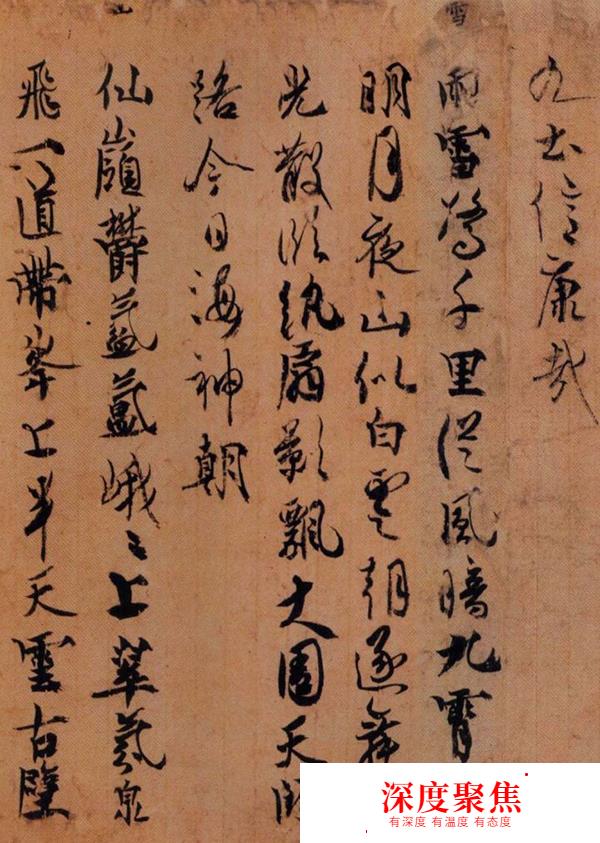 九土信康哉
雪
雨雪驚千里從風暗九霄
明月夜山似白雲朝逐舞
光散臨紈扇影飄大周天
路今日海神朝
仙嶺鬱氤氳峨〻上翠氛泉
飛一道帶峯上半天雲古壁
深度聚焦
有深度 有温度 有态度